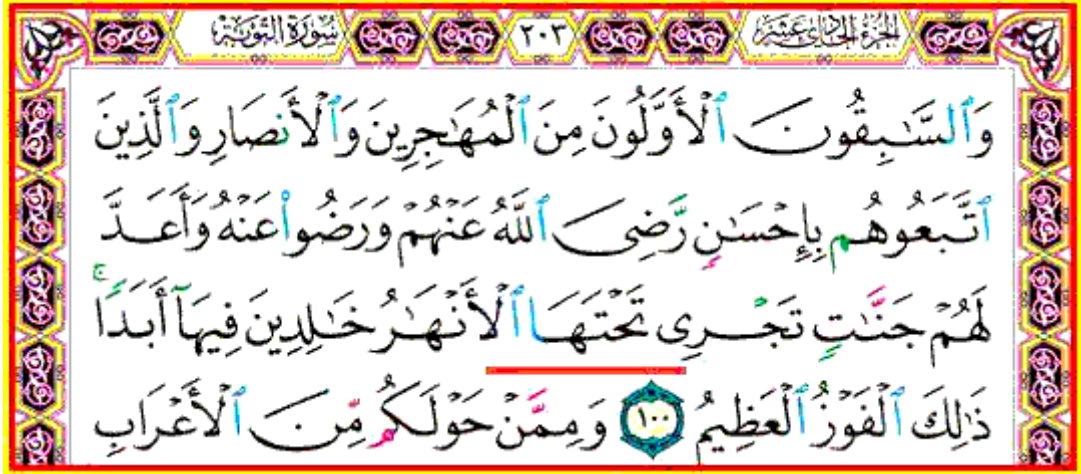 الجزء الحادي عشر ٢٠٣ سورة التوبة
وَٱلسَّٰبِقُونَ ٱلْأَوَّلُونَ مِنَ ٱلْمُهَٰجِرِينَ وَٱلْأَنصَارِ وَٱلَّذِينَ
ٱتَّبَعُوهُم بِإِحْسَٰنٍ رَّضِىَ ٱللَّهُ عَنْهُمْ وَرَضُوا۟ عَنْهُ وَأَعَدَّ
لَهُمْ جَنَّٰتٍ تَجْرِى تَحْتَهَا ٱلْأَنْهَٰرُ خَٰلِدِينَ فِيهَآ أَبَدًا ۚ
ذَٰلِكَ ٱلْفَوْزُ ٱلْعَظِيمُ ١٠٠ وَمِمَّنْ حَوْلَكُم مِّنَ ٱلْأَعْرَابِ